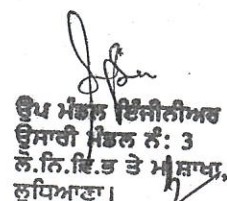 ਉਪ ਮੰਡਲ ਇੰਜੀਨੀਅਰ
ਉਸਾਰੀ ਮੰਡਲ ਨੰ: 3
ਲੋ.ਨਿ.ਵਿ.ਭ ਤੇ ਮ ਸ਼ਾਖਾ,
ਲੁਧਿਆਣਾ।